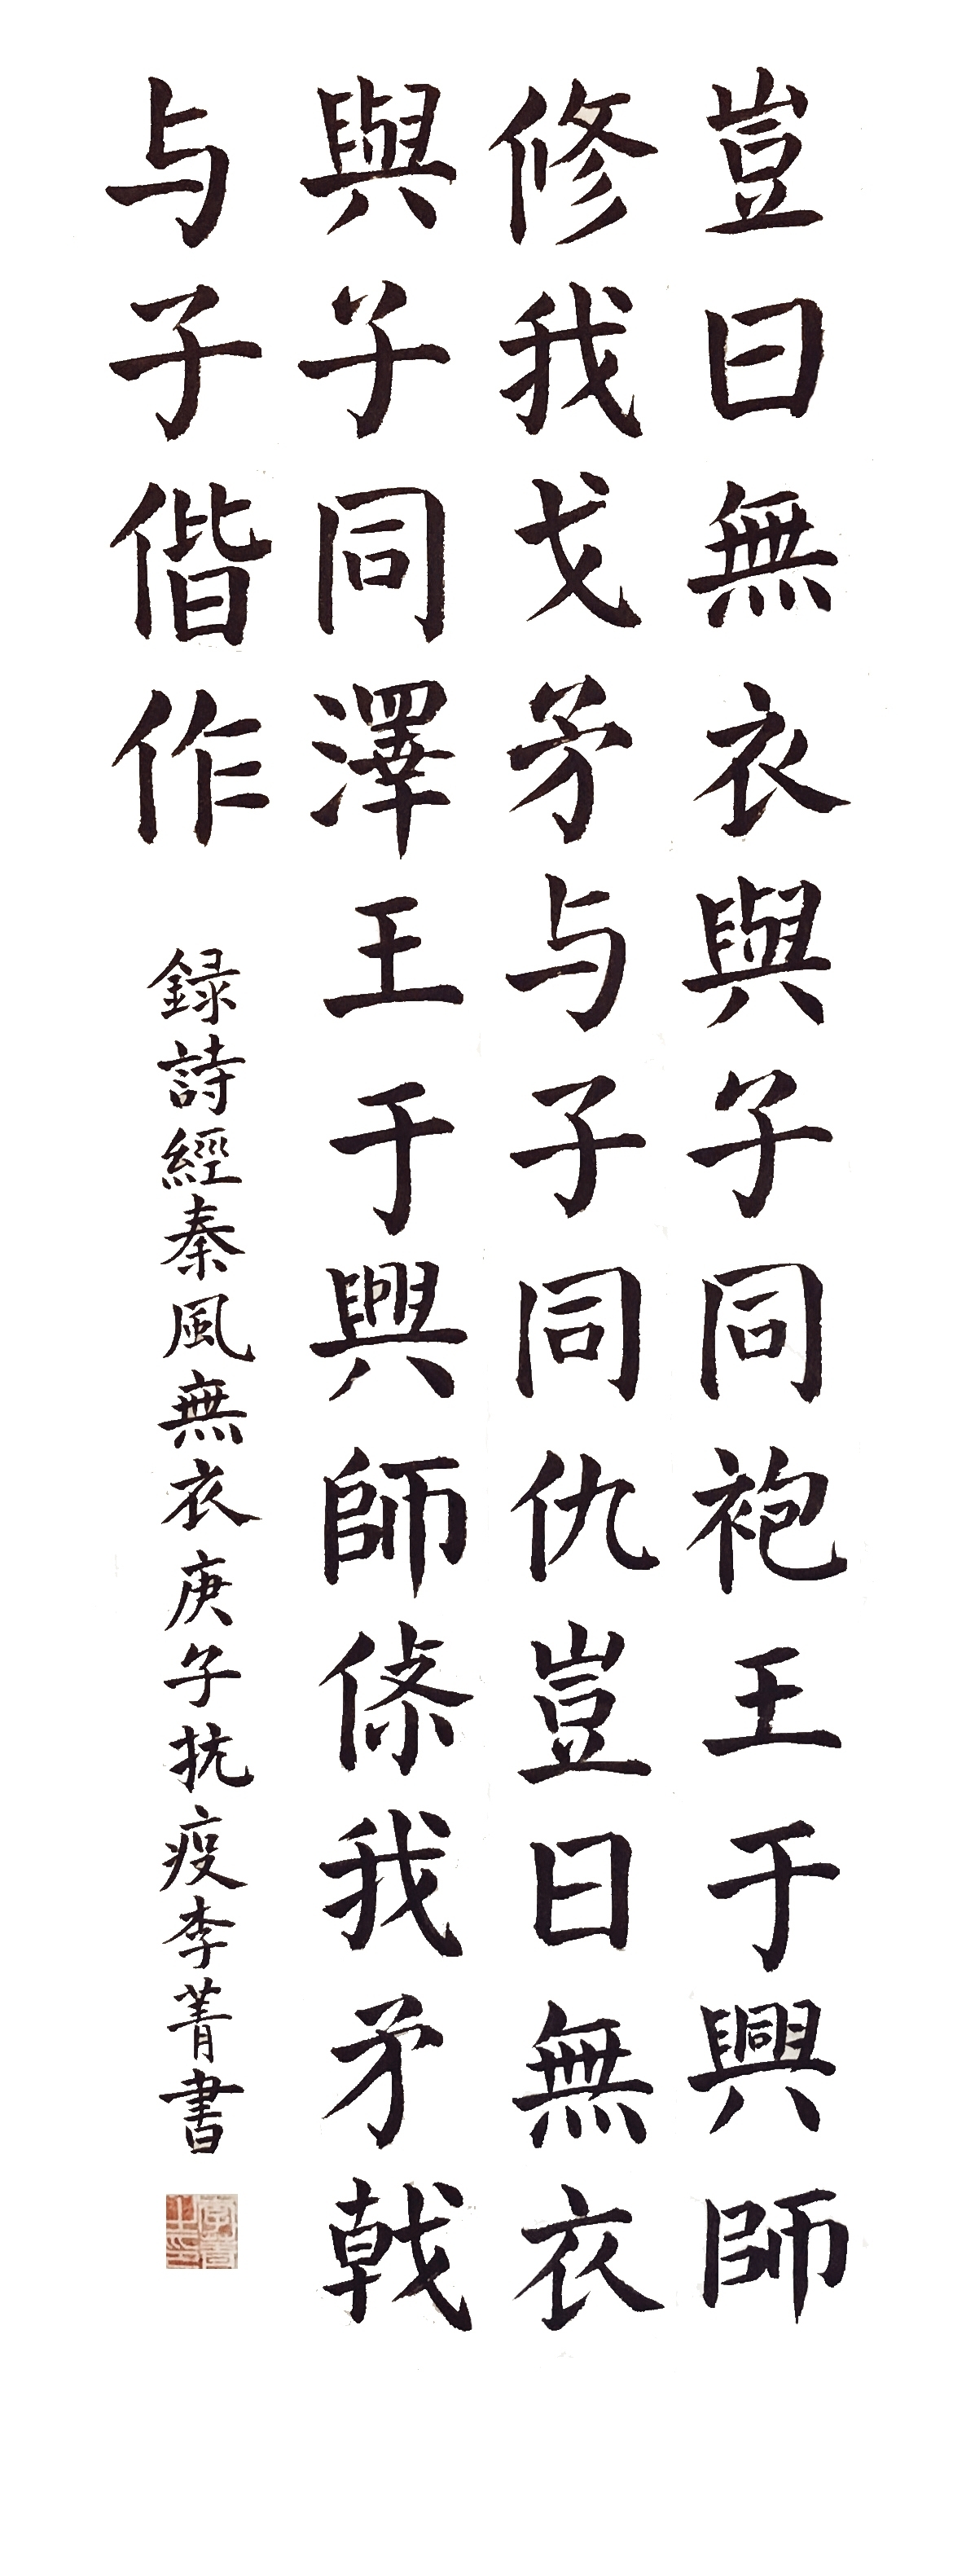 豈曰無衣與子同袍王于興師
修我戈矛与子同仇豈曰無衣
與子同澤王于興師條我矛戟
与子偕作
録詩經秦風無衣庚子抗疫李菁書